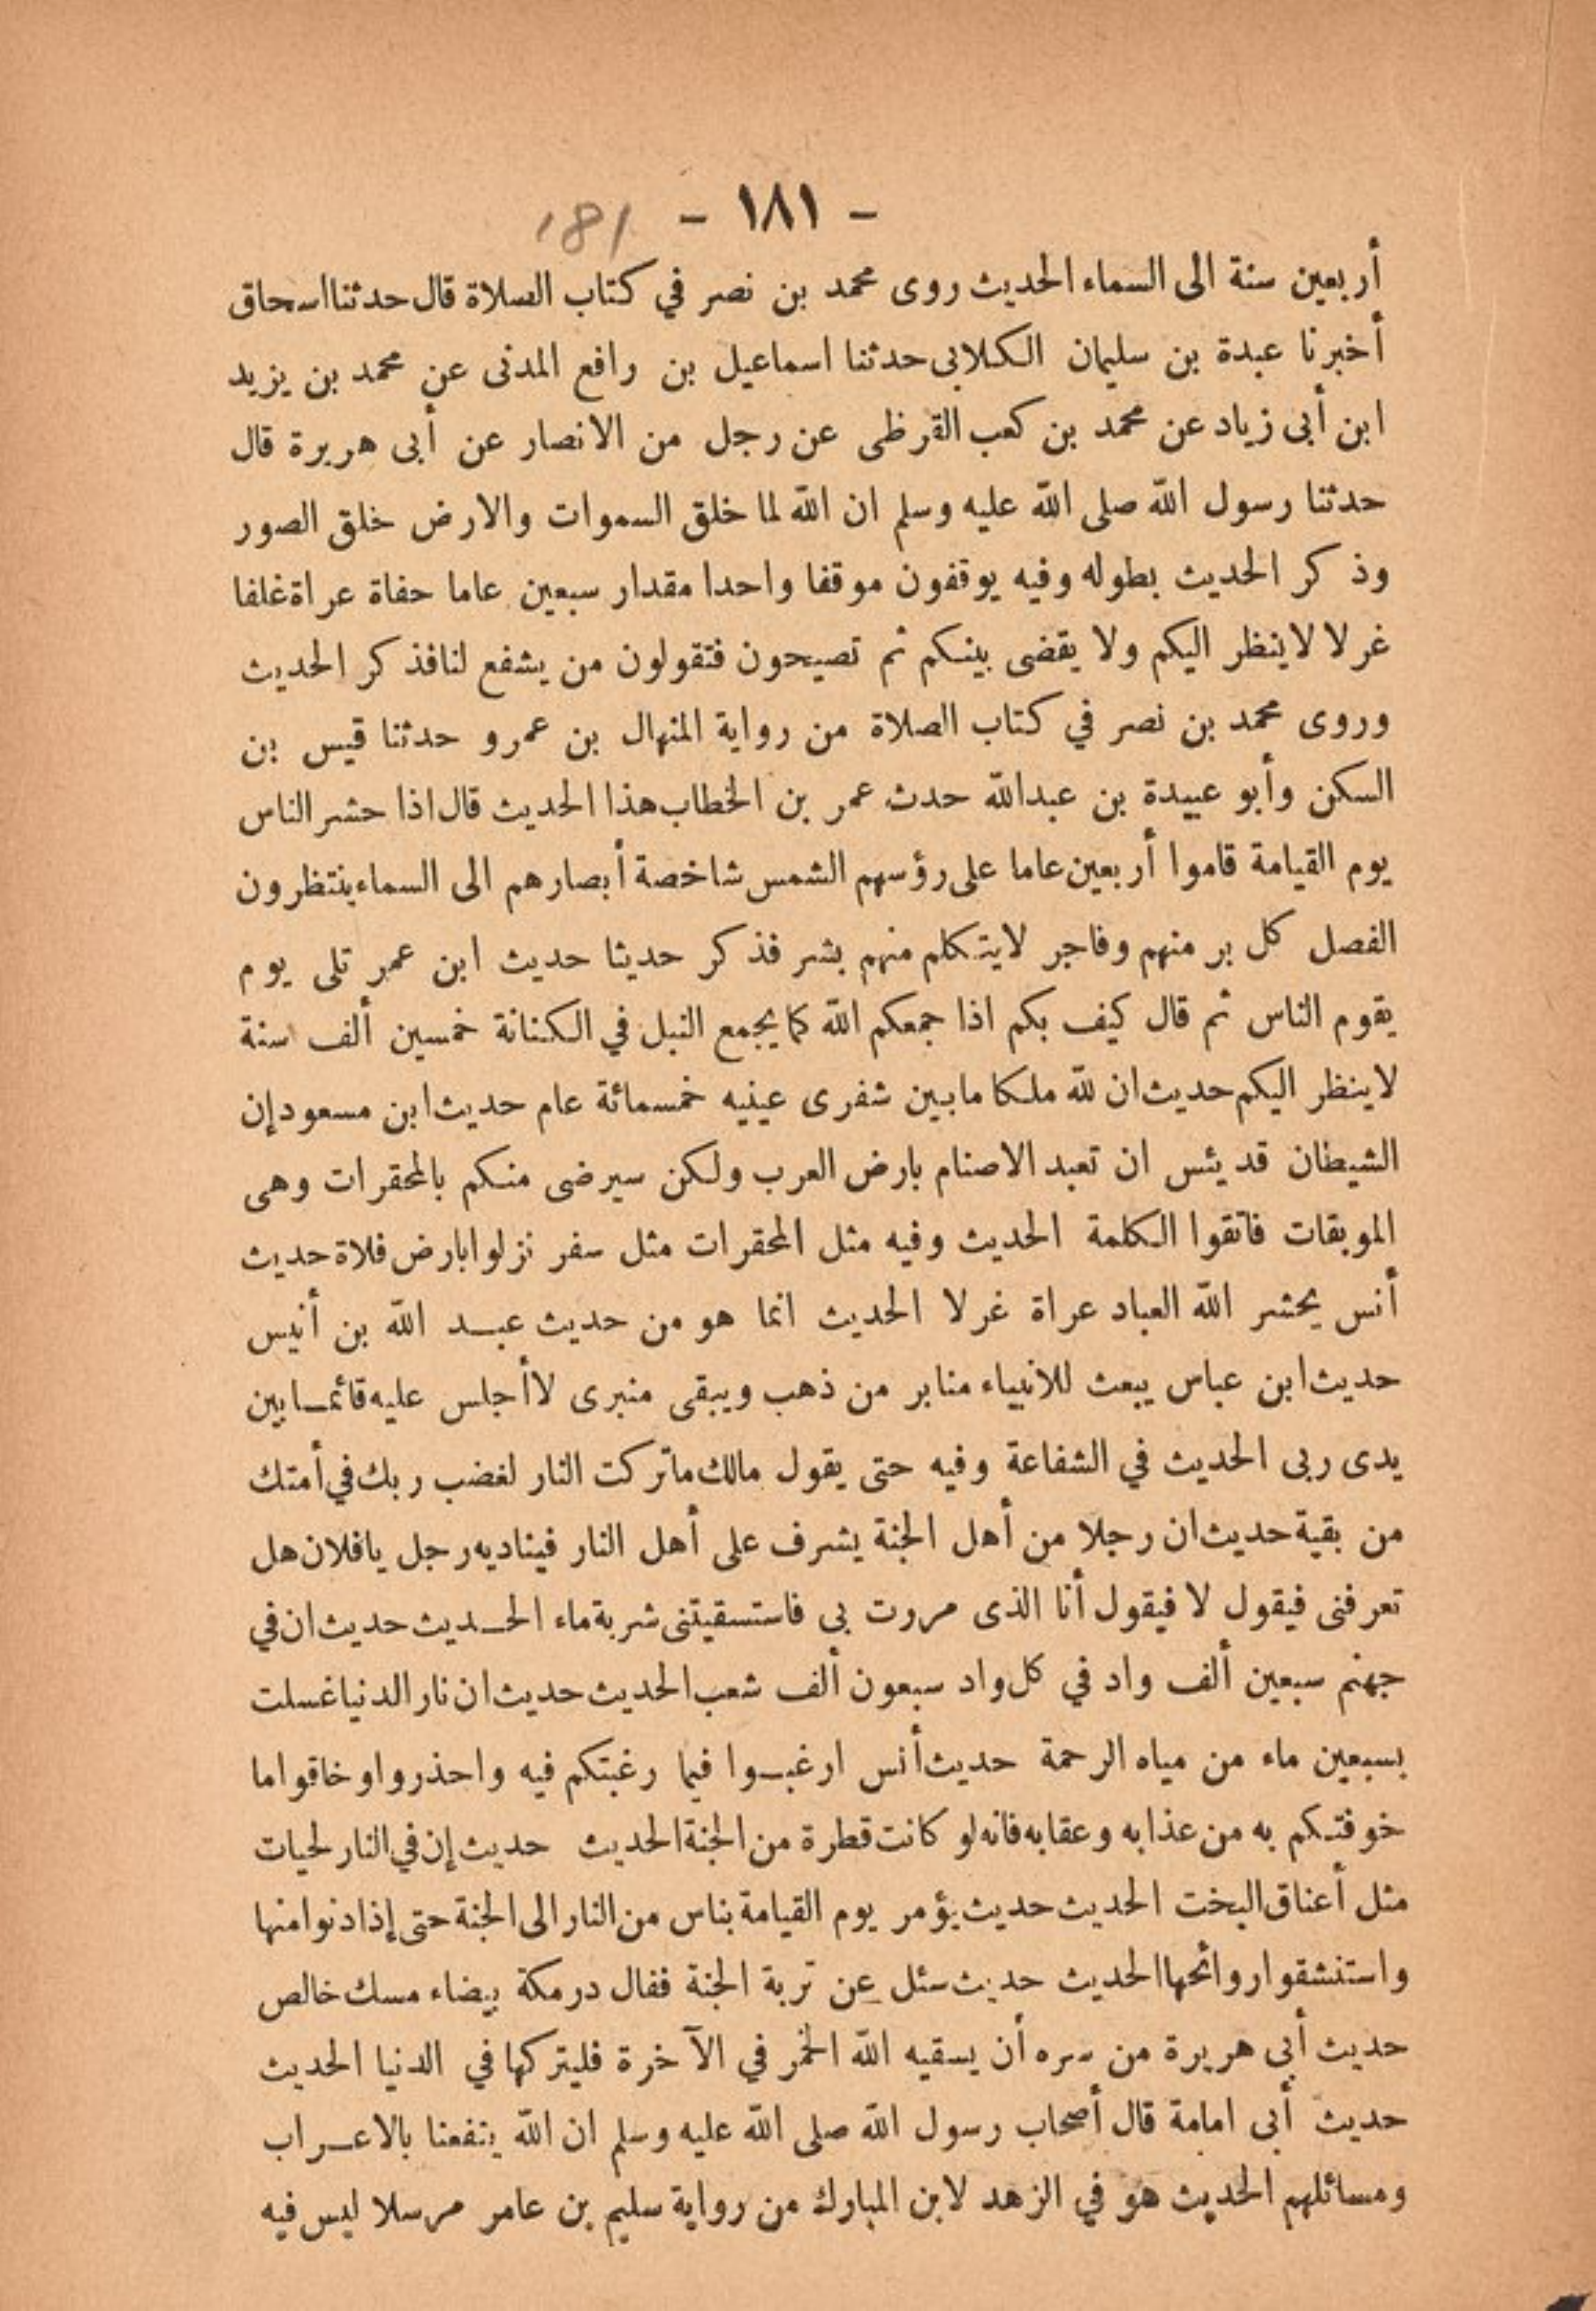 - ١٨١ - 181
أربعين سنة الى السماء الحديث روى محمد بن نصر في كتاب الصلاة قال حدثنا اسحاق
أخبرنا عبدة بن سليمان الكلابى حدثنا اسماعيل بن رافع المدنى عن محمد بن يزيد
ابن أبى زياد عن محمد بن كعب القرظى عن رجل من الانصار عن أبى هريرة قال
حدثنا رسول الله صلى الله عليه وسلم ان الله لما خلق السموات والارض خلق الصور
وذكر الحديث بطوله وفيه يوقفون موقفا واحدا مقدار سبعين عاما حفاة عراة غلفا
غرلا لا ينظر اليكم ولا يقضى بينكم ثم تصيحون فتقولون من يشفع لنا فذكر الحديث
وروى محمد بن نصر في كتاب الصلاة من رواية المنهال بن عمرو حدثنا قيس بن
السكن وأبو عبيدة بن عبدالله حدث عمر بن الخطاب هذا الحديث قال اذا حشر الناس
يوم القيامة قاموا أربعين عاما على رؤسهم الشمس شاخصة أبصارهم الى السماء ينتظرون
الفصل كل بر منهم وفاجر لا يتكلم منهم بشر فذكر حديثا حديث ابن عمر تلى يوم
يقوم الناس ثم قال كيف بكم اذا جمعكم الله كما يجمع النبل في الكنانة خمسين ألف سنة
لا ينظر اليكم حديث ان لله ملكا ما بين شفرى عينيه خمسمائة عام حديث ابن مسعود إن
الشيطان قد يئس ان تعبد الاصنام بارض العرب ولكن سيرضى منكم بالمحقرات وهى
الموبقات فاتقوا الكلمة الحديث وفيه مثل المحقرات مثل سفر نزلوا بارض فلاة حديث
أنس يحشر الله العباد عراة غرلا الحديث انما هو من حديث عبد الله بن أنيس
حديث ابن عباس يبعث للانبياء منابر من ذهب ويبقى منبرى لا أجلس عليه قائما بين
يدى ربى الحديث في الشفاعة وفيه حتى يقول مالك ما تركت النار لغضب ربك في أمتك
من بقية حديث ان رجلا من أهل الجنة يشرف على أهل النار فيناديه رجل يا فلان هل
تعرفنى فيقول لا فيقول أنا الذى مررت بى فاستسقيتنى شربة ماء الحديث حديث ان في
جهنم سبعين ألف واد في كل واد سبعون ألف شعب الحديث حديث ان نار الدنيا غسلت
بسبعين ماء من مياه الرحمة حديث أنس ارغبوا فيما رغبتكم فيه واحذروا وخافوا ما
خوفتكم به من عذابه وعقابه فانه لو كانت قطرة من الجنة الحديث حديث إن في النار لحيات
مثل أعناق البخت الحديث حديث يؤمر يوم القيامة بناس من النار الى الجنة حتى إذا دنوا منها
واستنشقوا روائحها الحديث حديث سئل عن تربة الجنة فقال درمكة بيضاء مسك خالص
حديث أبى هريرة من سره أن يسقيه الله الخمر في الآخرة فليتركها في الدنيا الحديث
حديث أبى امامة قال أصحاب رسول الله صلى الله عليه وسلم ان الله ينفعنا بالاعراب
ومسائلهم الحديث هو في الزهد لابن المبارك من رواية سليم بن عامر مرسلا ليس فيه